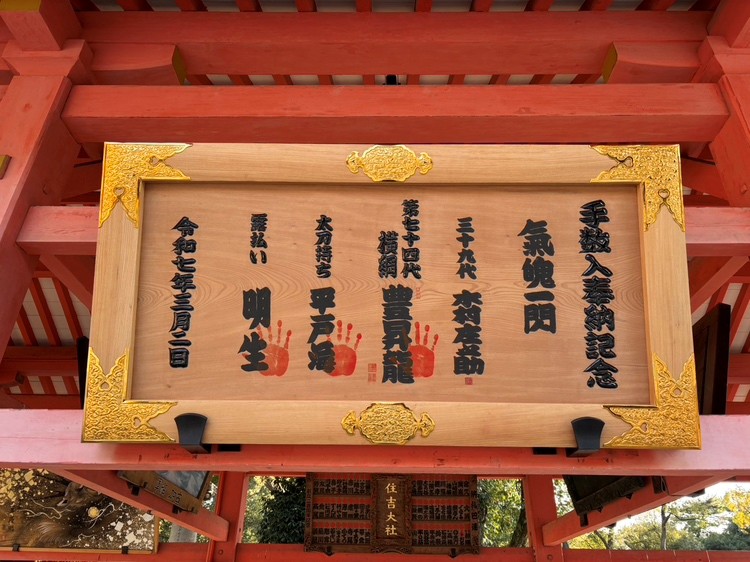 手数入奉納記念
氣魄一閃
三十九代
木村庄之助
第七十四代
横綱
豊昇龍
太刀持ち
平戸海
露払い
明生
令和七年三月二日
住吉大社